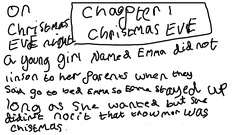 Chapter 1
Christmas EVE
on
Christmas
EVE night
a young girl Named Emma did not
linson to her Parents when they
said go to bed Emma so Emma stayed up
long as she wanted but she
didint nocit that thowmorr was
Chistmas.